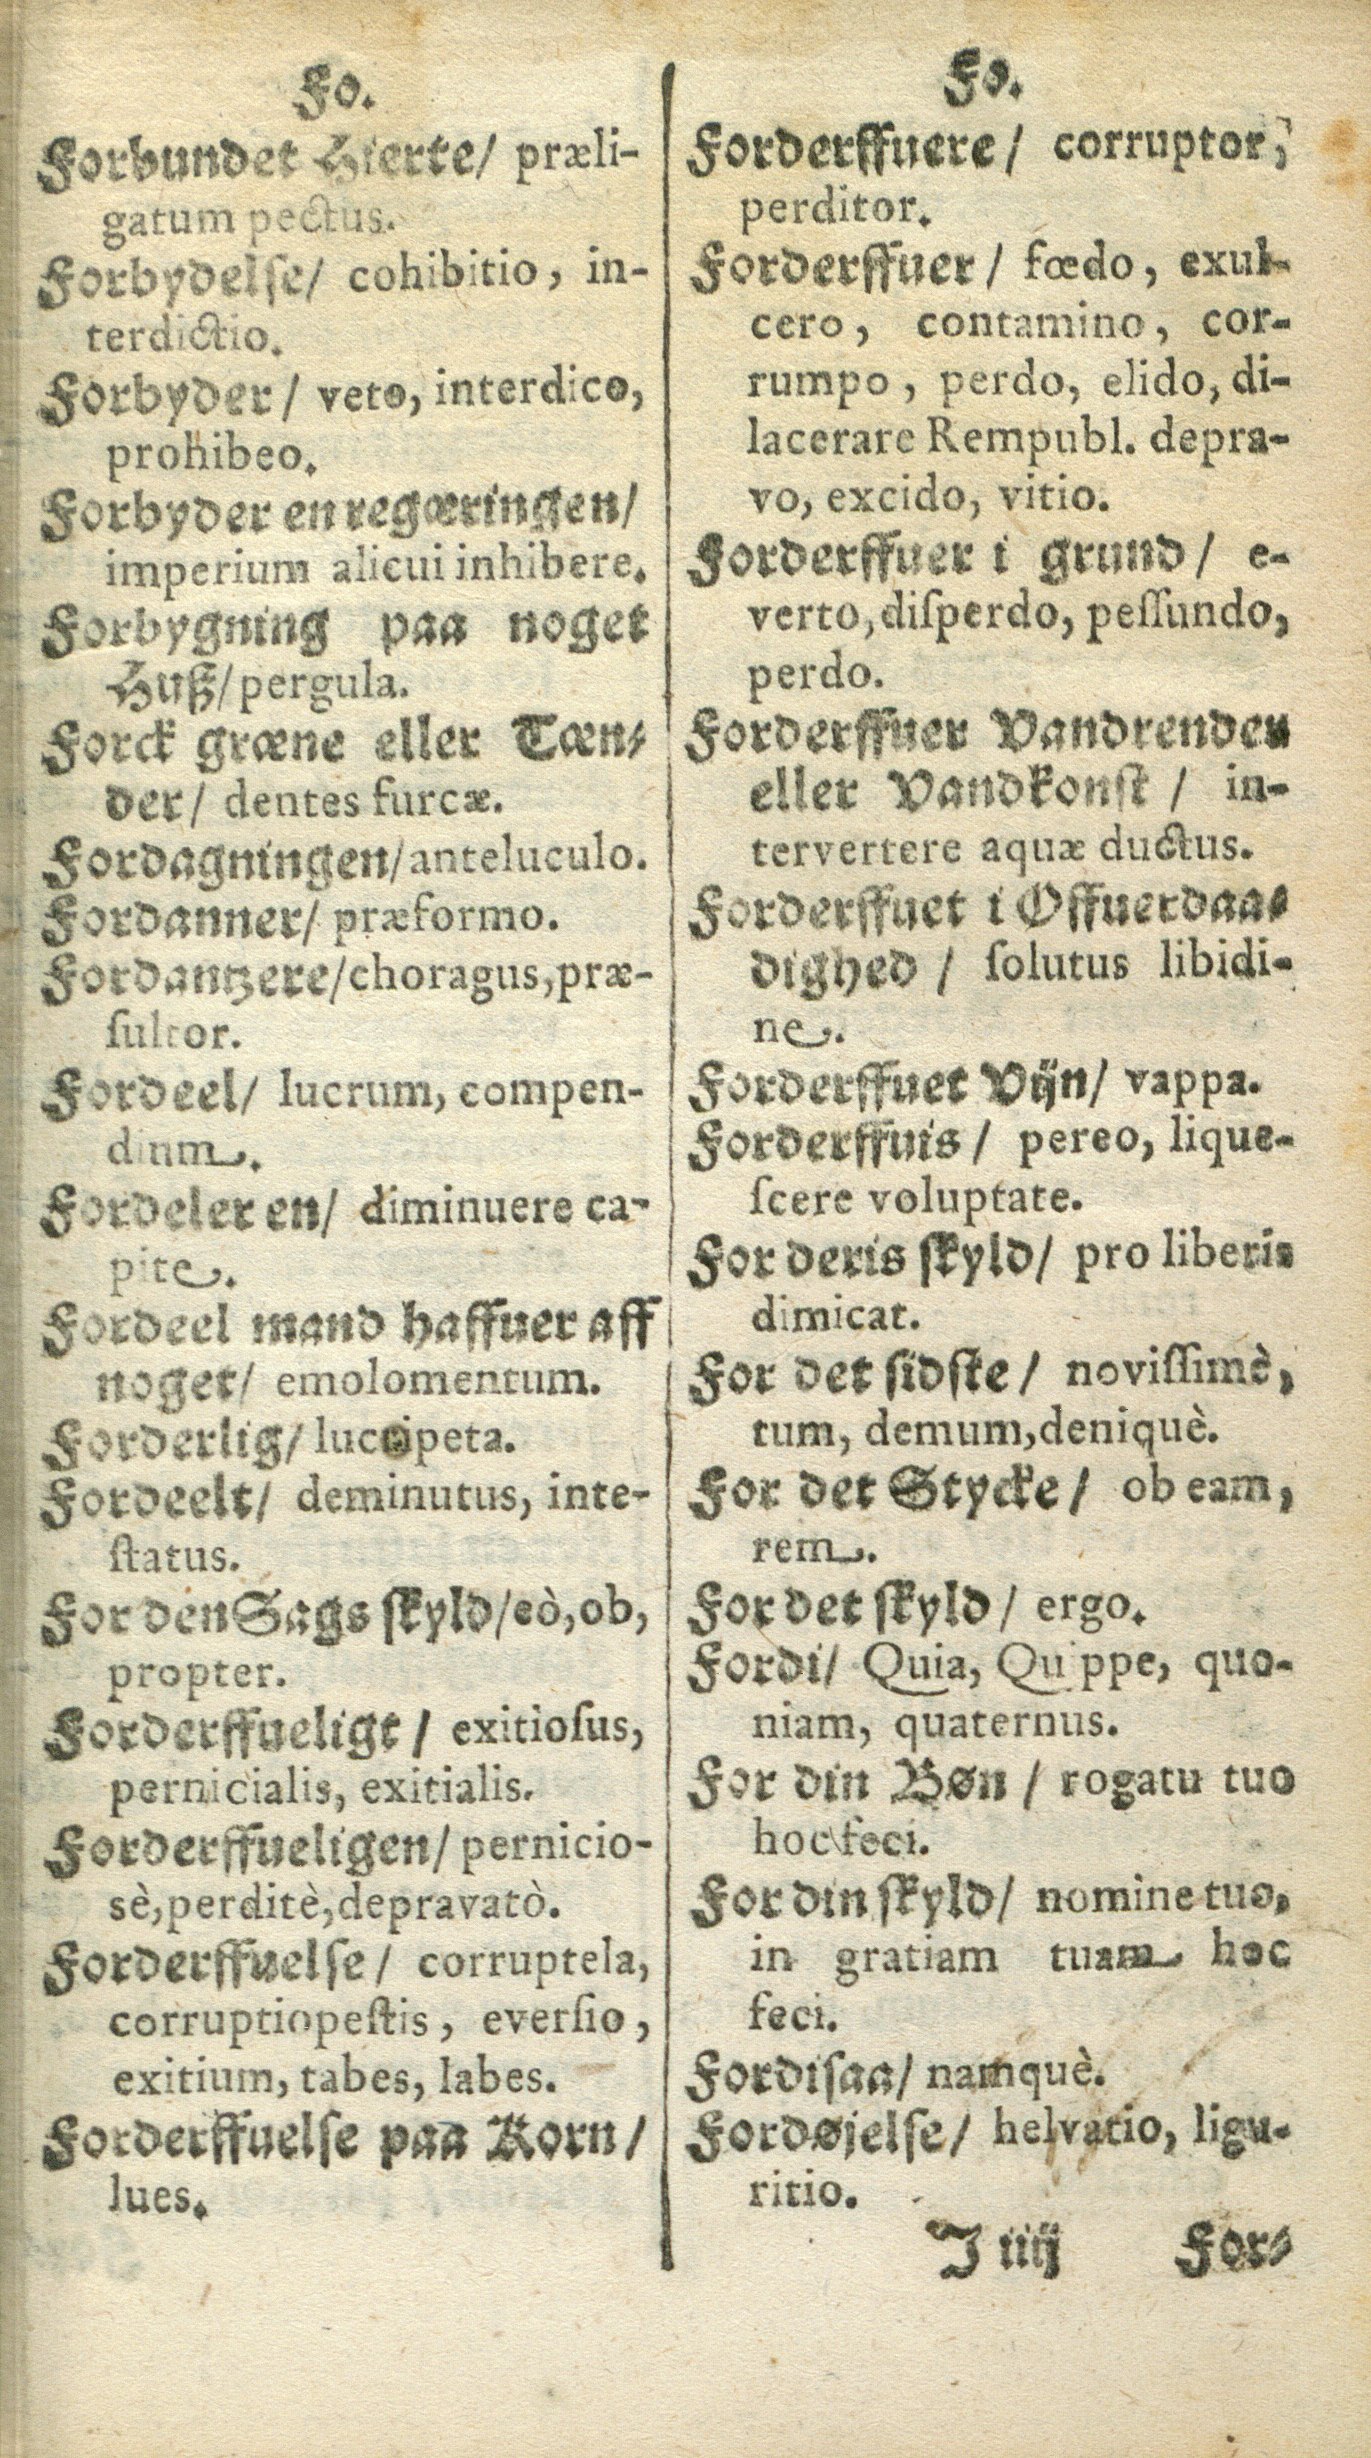 Fo.
Forbundet Hierte/ præli-
gatum pectus.
Forbydelſe/ cohibitio, in-
terdictio.
Forbyder/ veto, interdico,
prohibeo.
Forbyder en regæringen/
imperium alicui inhibere.
Forbygning paa noget
Huß/pergula.
Forck græne eller Tæn-
der/ dentes furcæ.
Fordagningen/anteluculo.
Fordanner/ præformo.
Fordantzere/choragus,præ-
ſultor.
Fordeel/ lucrum, compen-
dium.
Fordeler en/ diminuere ca-
pite.
Fordeel mand haffuer aff
noget/ emolomentum.
Forderlig/ luccipeta.
Fordeelt/ deminutus, inte-
ſtatus.
For den Sags ſkyld/eò,ob,
propter.
Forderffueligt/ exitioſus,
pernicialis, exitialis.
Forderffueligen/ pernicio-
sè,perditè,depravatò.
Forderffuelſe/ corruptela,
corruptiopeſtis, everſio,
exitium, tabes, labes.
Forderffuelſe paa Korn/
lues.
Fo.
Forderffuere/ corruptor,
perditor.
Forderffuer/ fœdo, exul-
cero, contamino, cor-
rumpo, perdo, elido, di-
lacerare Rempubl. depra-
vo, excido, vitio.
Forderffuer i grund/ e-
verto,diſperdo, peſſundo,
perdo.
Forderffuer Vandrenden
eller Vandkonſt/ in-
tervertere aquæ ductus.
Forderffuet i Offuerdaa-
dighed/ ſolutus libidi-
ne.
Forderffuet Vijn/ vappa.
Forderffuis/ pereo, lique-
ſcere voluptate.
For deris ſkyld/ pro liberis
dimicat.
For det ſidſte/ noviſſimè,
tum, demum,deniquè.
For det Stycke/ ob eam,
rem.
For det ſkyld/ ergo.
Fordi/ Quia, Quippe, quo-
niam, quaternus.
For din Bøn/ rogatu tuo
hoc feci.
For din ſkyld/ nomine tuo,
in gratiam tuam hoc
feci.
Fordiſaa/ namquè.
Fordøjelſe/ helvatio, ligu-
ritio.
J iiij For-